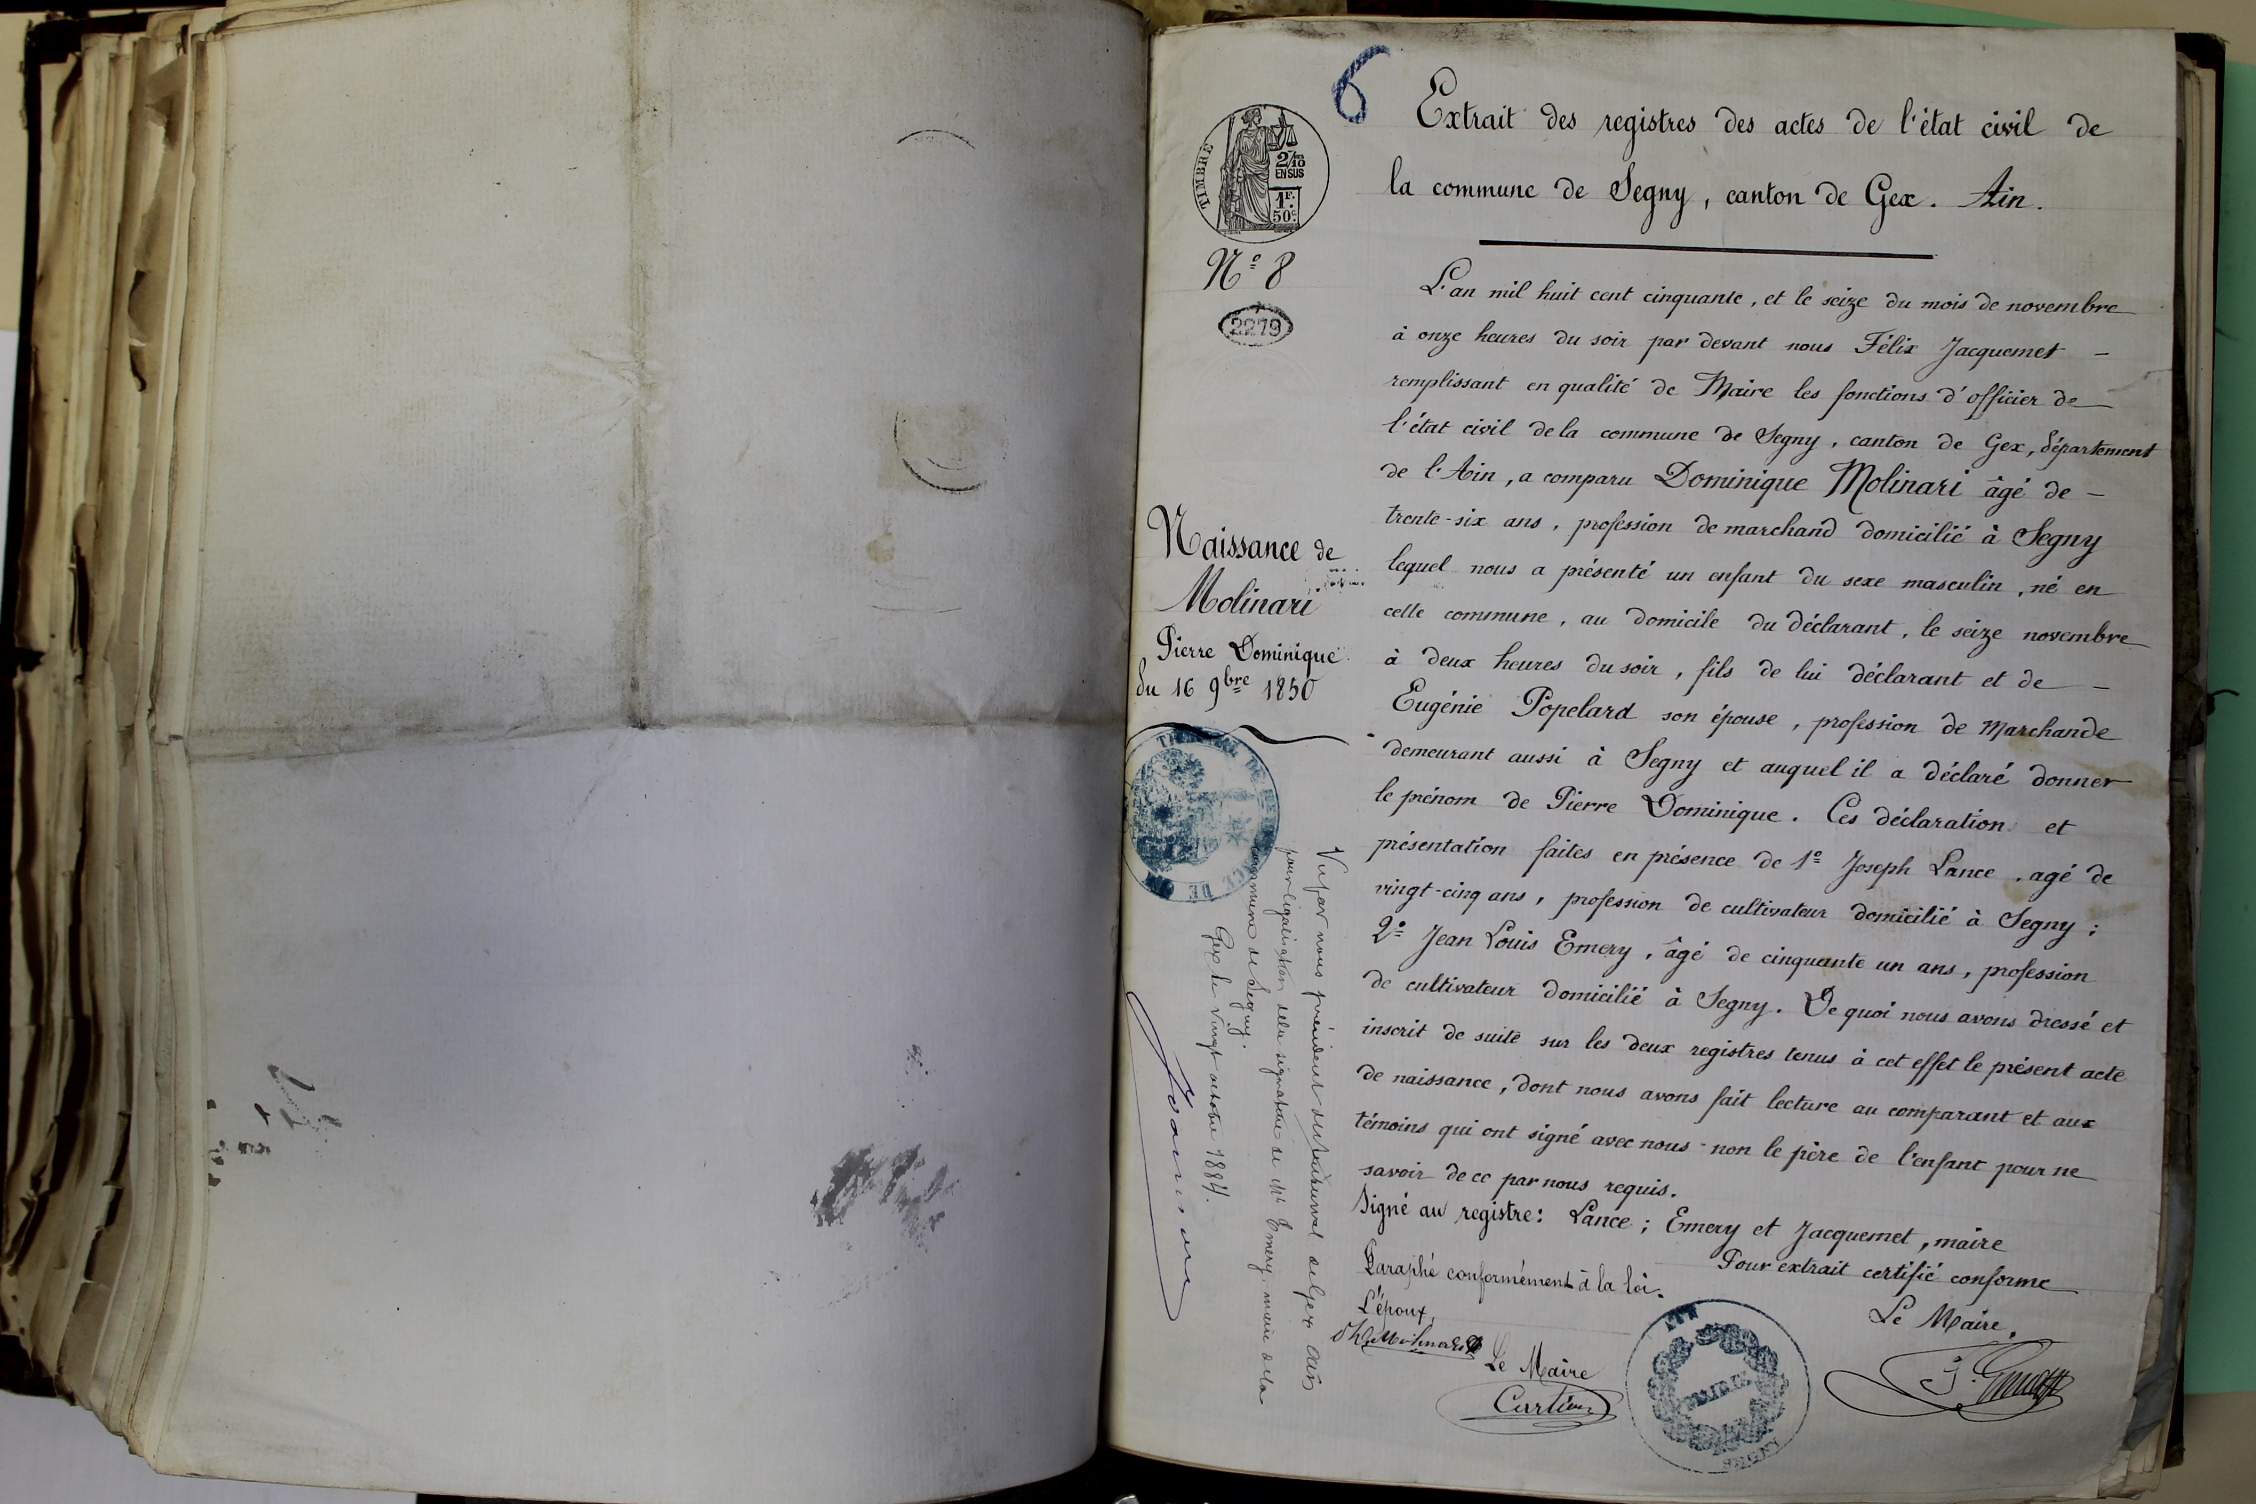 6
Extrait des registres des actes de l'état civil de
la commune de Segny, canton de Gex. Ain.
TIMBRE
2/10
EN SUS
1F.
50c
Nº 8
2279
L'an mil huit cent cinquante, et le seize du mois de novembre
à onze heures du soir par devant nous Félix Jacquemet –
remplissant en qualité de Maire les fonctions d'officier de
l'état civil de la commune de Segny, canton de Gex, département
de l'Ain, a comparu Dominique Molinari âgé de –
trente-six ans, profession de marchand domicilié à Segny
lequel nous a présenté un enfant du sexe masculin, né en
cette commune, au domicile du déclarant, le seize novembre
à deux heures du soir, fils de lui déclarant et de –
Eugénie Popelard son épouse, profession de Marchande
demeurant aussi à Segny et auquel il a déclaré donner
le prénom de Pierre Dominique. Ces déclaration et
présentation faites en présence de 1º Joseph Lance, agé de
vingt-cinq ans, profession de cultivateur domicilié à Segny;
2º Jean Louis Emery, âgé de cinquante un ans, profession
de cultivateur domicilié à Segny. De quoi nous avons dressé et
inscrit de suite sur les deux registres tenus à cet effet le présent acte
de naissance, dont nous avons fait lecture au comparant et aux
témoins qui ont signé avec nous - non le père de l'enfant pour ne
savoir de ce par nous requis.
Signé au registre: Lance; Emery et Jacquemet, maire
Pour extrait certifié conforme
Le Maire,
Paraphé conformément à la loi.
L'époux,
Le Maire
MAIRIE
AIN
SEGNY
Naissance de
Molinari
Pierre Dominique
du 16 9bre 1850
Vu par nous président du tribunal de Gex Ain
pour légalisation de la signature de Mr Emery, maire de la
commune de Segny.
Gex le vingt octobre 1884.